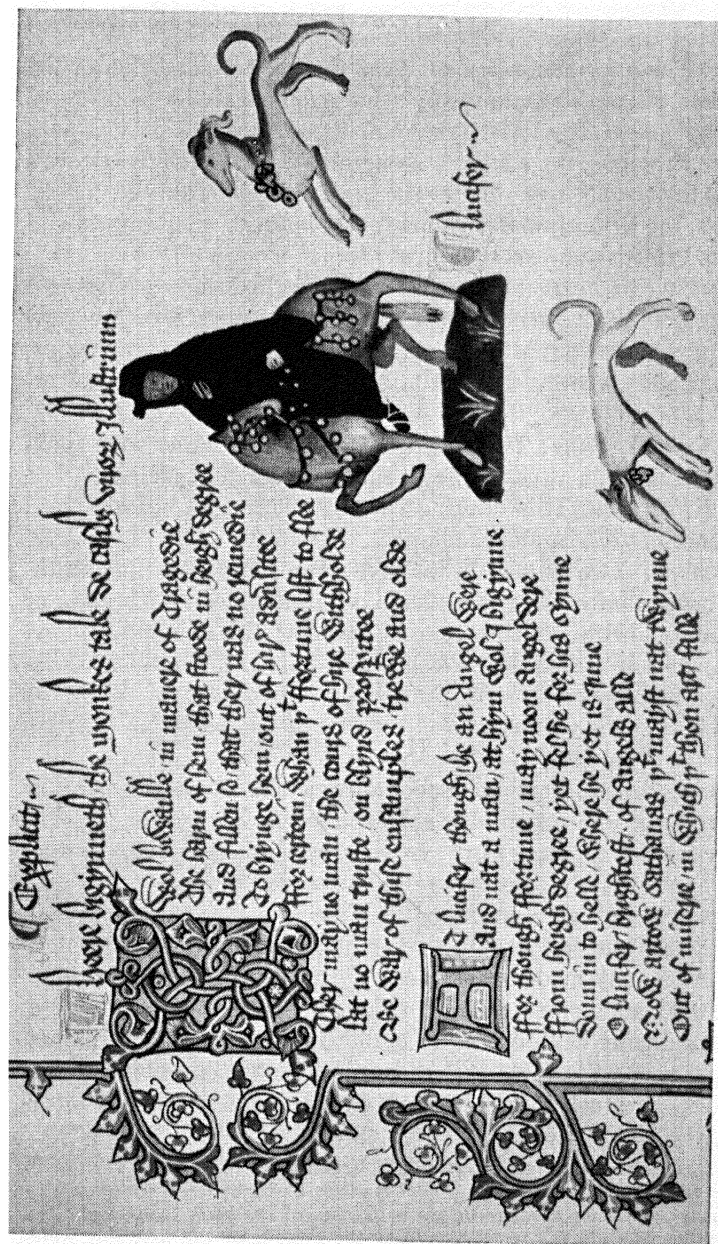 ¶ Explicit
Heere bigynneth the Monkes tale de Casibus Viror Illustrium
I Wol biwaille in manere of Tragedie
The harm of hem that stoode in heigh degree
And fillen so / that ther nas no remedie
To brynge hem / out of hir aduersitee
ffor certein whan þt ffortune list to flee
Ther may no man / the cours of hire withholde
Lat no man truste / on blynd prosperitee
Be War of thise ensamples trewe and olde
¶ lucifer
At lucifer though he an Angel were
And nat a man / at hym wol I bigynne
ffor though ffortune / may noon Angel dere
ffrom heigh degree / yet fel he for his synne
Doun in to helle / where he yet is Inne
O lucifer / brightest of Angels alle
Now artow Sathanas þt mayst nat twynne
Out of miserie / in which þt thou art falle